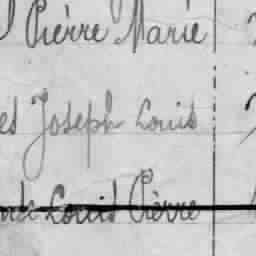 Pièrre Marie
Joseph Louis
Louis Pièrre